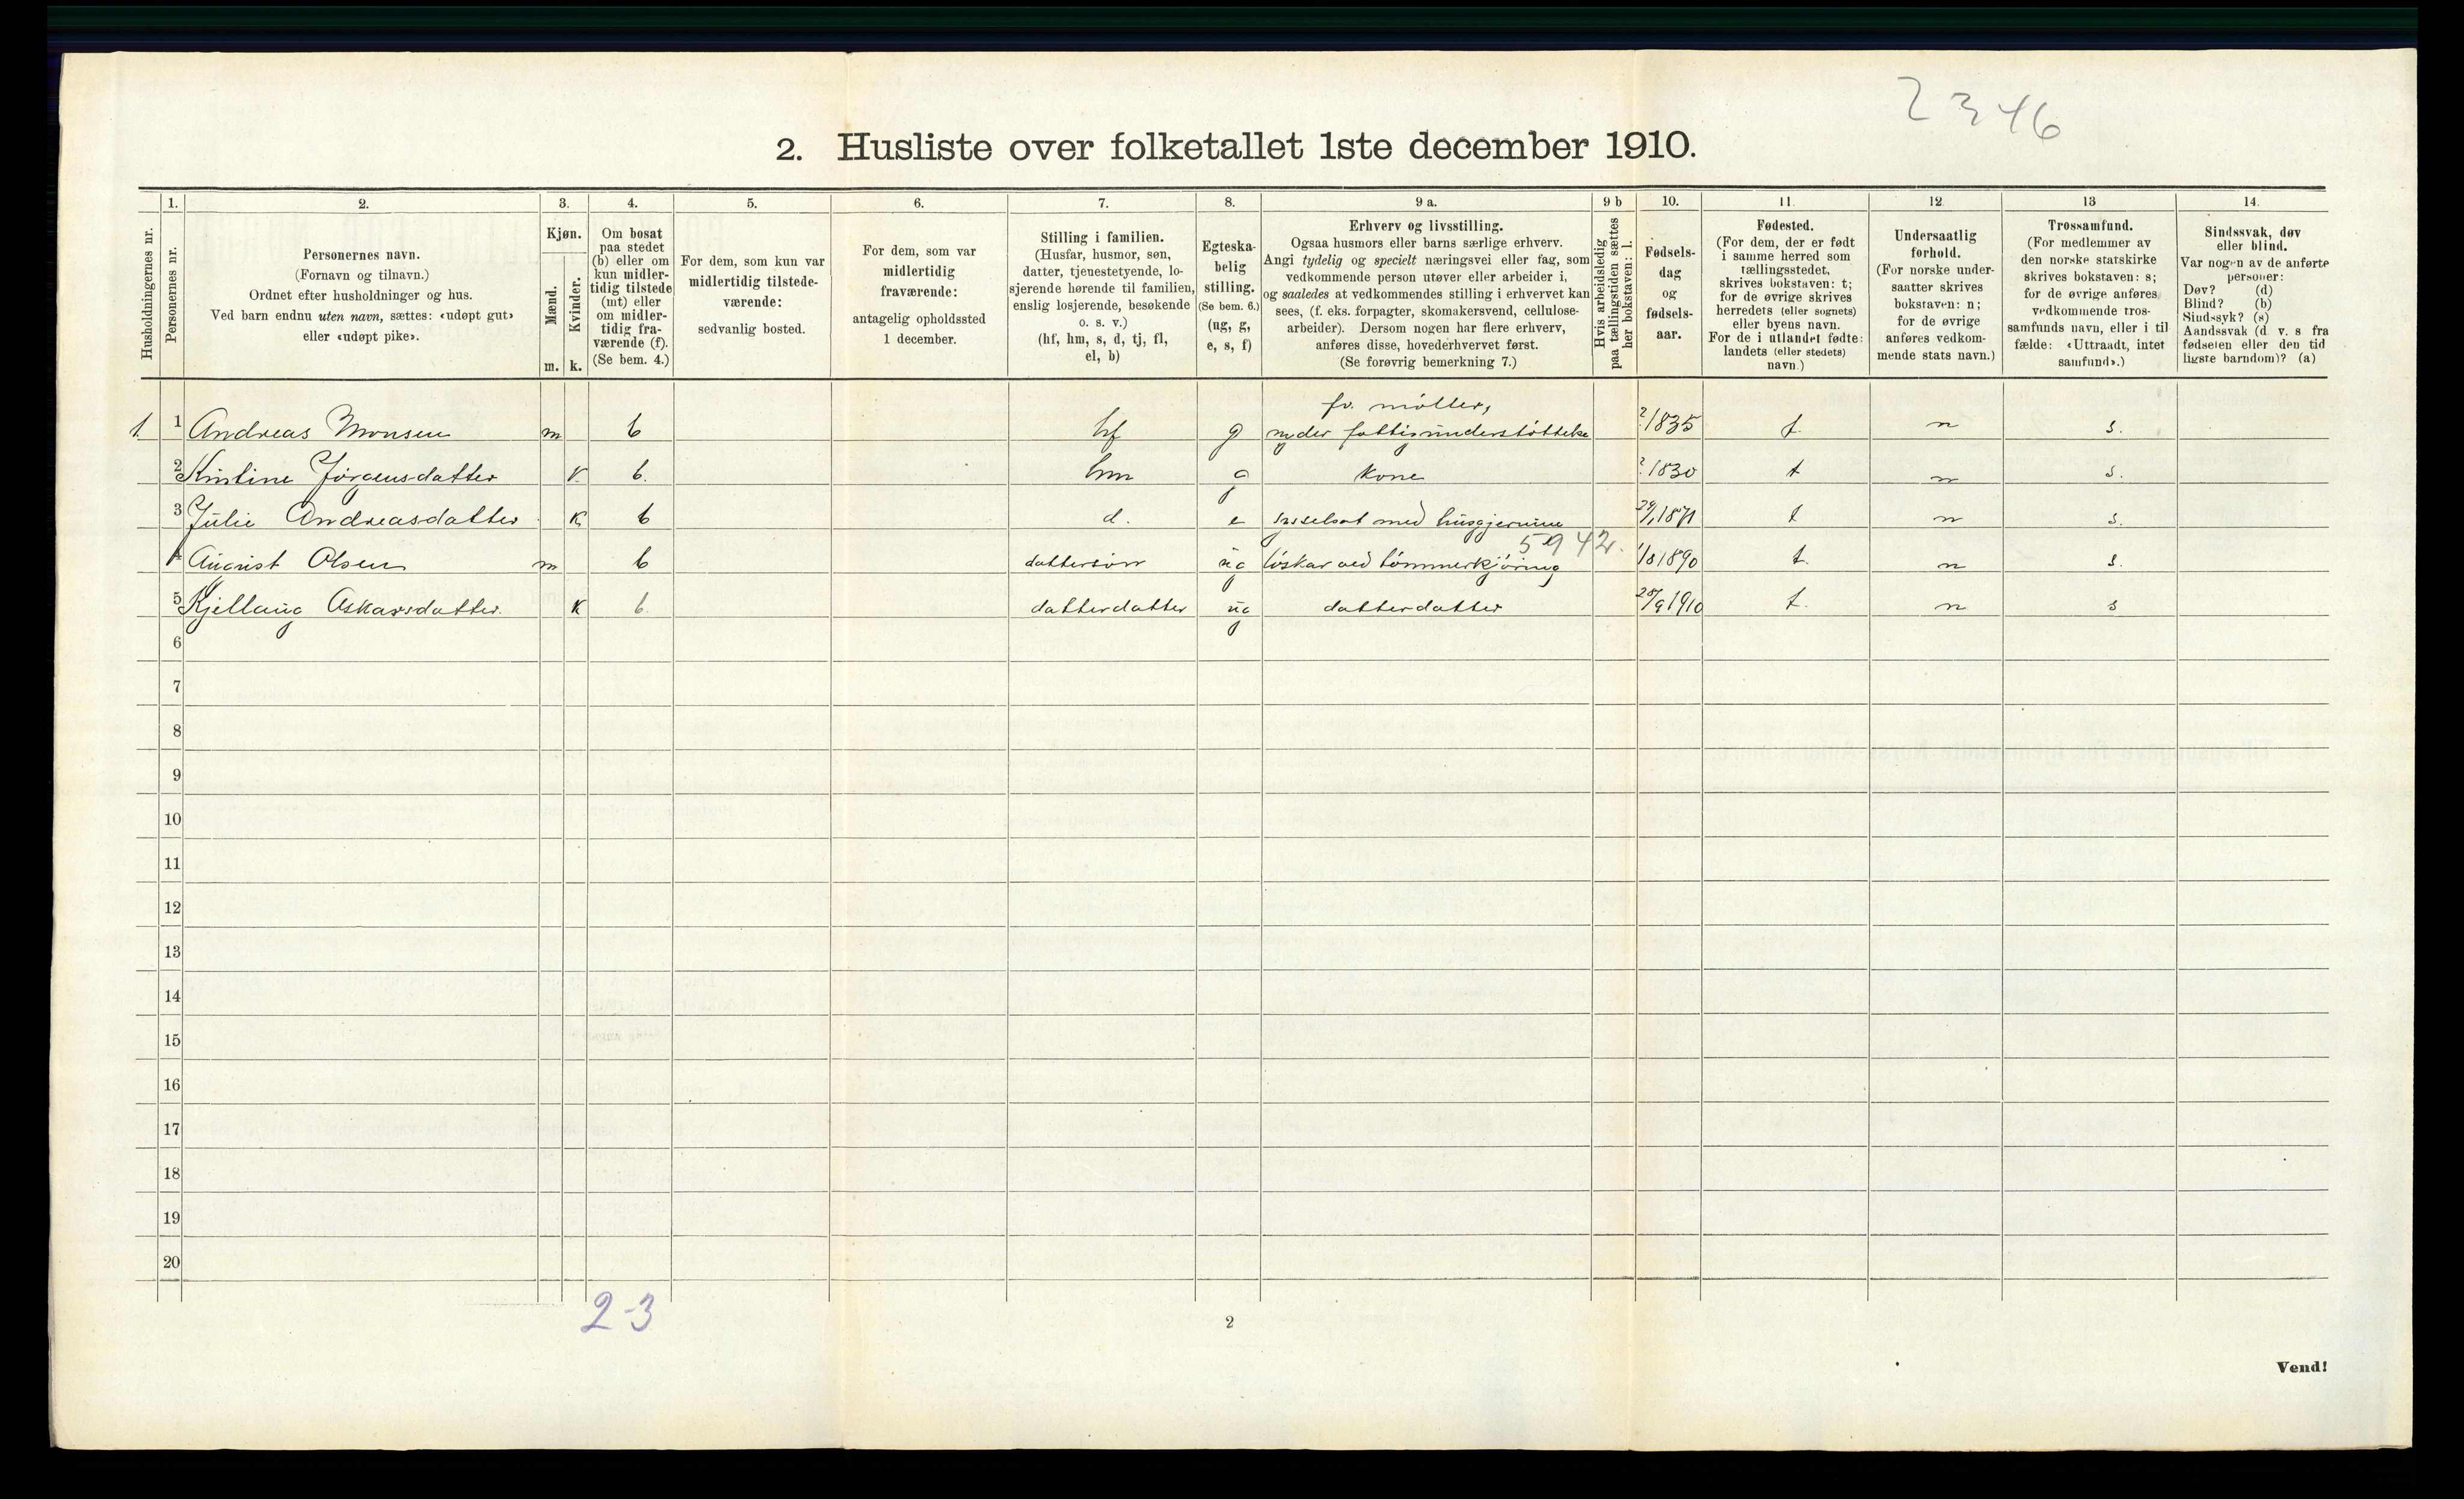 2346
2. Husliste over folketallet 1ste december 1910.
Husholdningernes nr.
1.
Personernes nr.
2.
Personernes navn.
(Fornavn og tilnavn.)
Ordnet efter husholdninger og hus.
Ved barn endnu uten navn, sættes: «udøpt gut»
eller «udøpt pike».
3.
Kjøn.
Mænd.
Kvinder.
m. k.
4.
Om bosat
paa stedet
(b) eller om
kun midler-
tidig tilstede
(mt) eller
om midler-
tidig fra-
værende (f).
(Se bem. 4.)
5.
For dem, som kun var
midlertidig tilstede-
værende:
sedvanlig bosted.
6.
For dem, som var
midlertidig
fraværende:
antagelig opholdssted
1 december.
7.
Stilling i familien.
(Husfar, husmor, søn,
datter, tjenestetyende, lo-
sjerende hørende til familien,
enslig losjerende, besøkende
o. s. v.)
(hf, hm, s, d, tj, fl,
el, b)
8.
Egteska-
belig
stilling.
(Se bem. 6.)
(ug, g,
e, s, f)
9 a.
Erhverv og livsstilling.
Ogsaa husmors eller barns særlige erhverv.
Angi tydelig og specielt næringsvei eller fag, som
vedkommende person utøver eller arbeider i,
og saaledes at vedkommendes stilling i erhvervet kan
sees, (f. eks. forpagter, skomakersvend, cellulose-
arbeider). Dersom nogen har flere erhverv,
anføres disse, hovederhvervet først.
(Se forøvrig bemerkning 7.)
9 b
Hvis arbeidsledig
paa tællingstiden sættes
her bokstaven: l.
10.
Fødsels-
dag
og
fødsels-
aar.
11.
Fødested.
(For dem, der er født
i samme herred som
tællingsstedet,
skrives bokstaven: t;
for de øvrige skrives
herredets (eller sognets)
eller byens navn.
For de i utlandet fødte:
landets (eller stedets)
navn.)
12
Undersaatlig
forhold.
(For norske under-
saatter skrives
bokstaven: n;
for de øvrige
anføres vedkom-
mende stats navn.)
13
Trossamfund.
(For medlemmer av
den norske statskirke
skrives bokstaven: s;
for de øvrige anføres
vedkommende tros-
samfunds navn, eller i til
fælde: «Uttraadt, intet
samfund».)
14.
Sindssvak, døv
eller blind.
Var nogen av de anførte
personer:
Døv? (d)
Blind? (b)
Sindssyk? (s)
Aandssvak (d. v. s fra
fødselen eller den tid
ligste barndom)? (a)
fv. møller,
1. 1 Andreas Monsen m b hf g nyder fattigunderstøttelse ? 1835 t. n s.
2 Kristine Jørgensdatter k. b. hm g kone ? 1830 t n s.
3 Julie Andreasdatter k b d. e sysselsat med husgjerning 29/1 1871 t n s.
5942
4 August Olsen m b dattersøn ug løskar ved tømmerkjøring 1/8 1890 t. n s.
5 Kjellaug Askarsdatter. k b. datterdatter ug datterdatter 28/9 1910 t. n s
6
7
8
9
10
11
12
13
14
15
16
17
18
19
20
2-3
2
Vend!